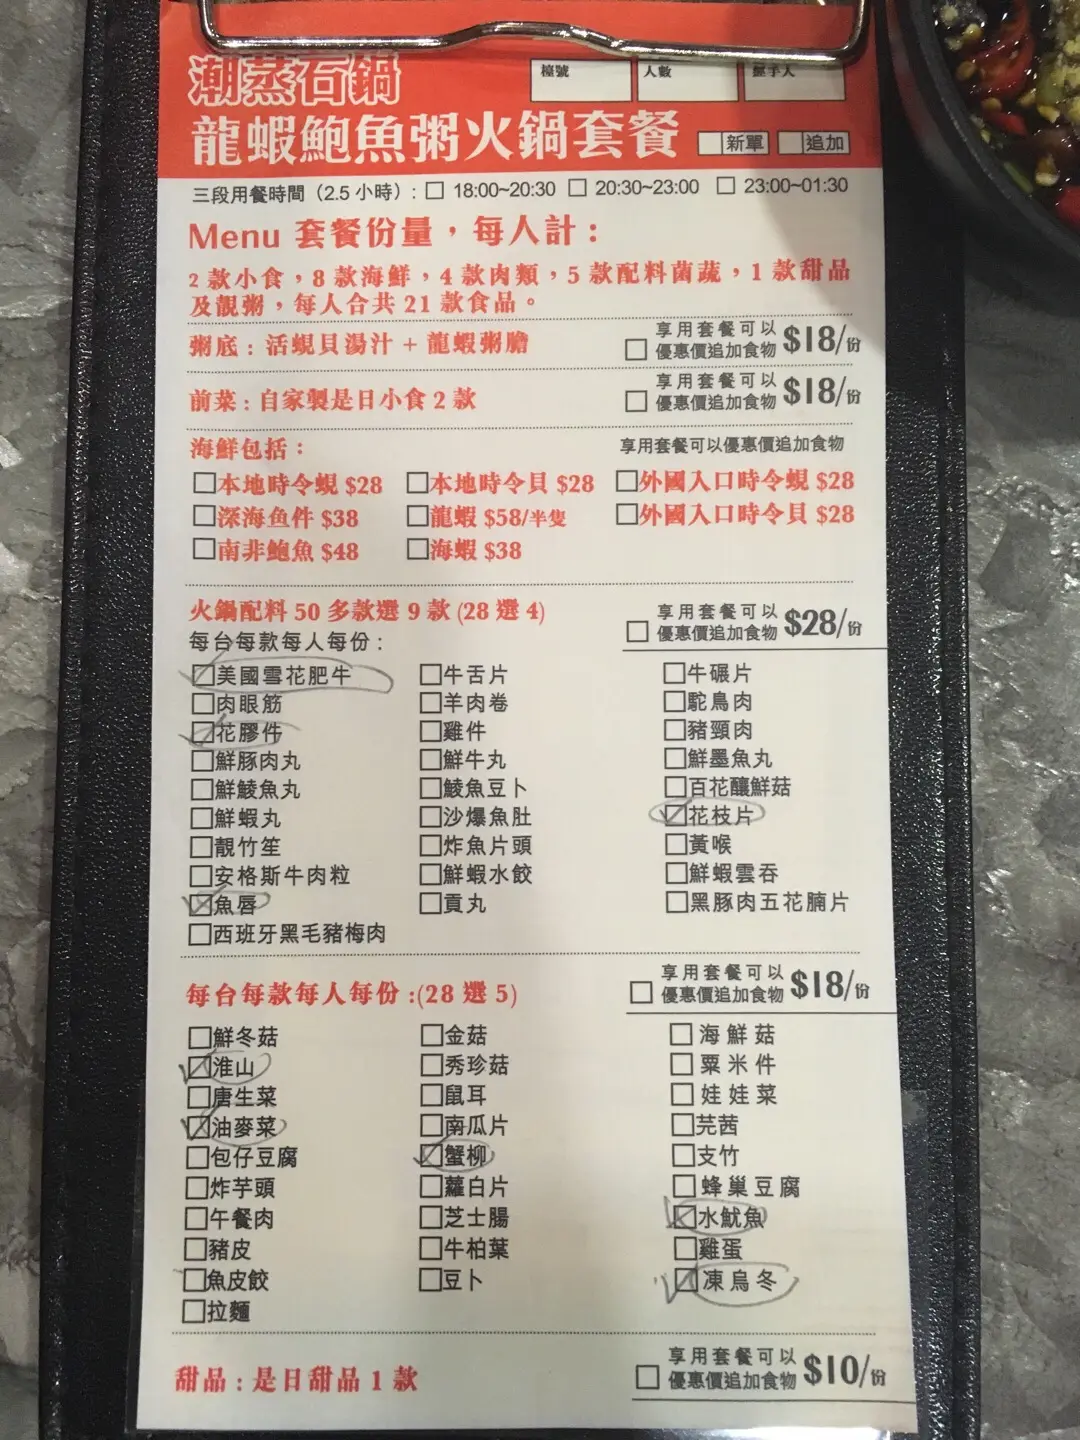 潮蒸石鍋
檯號
人數
經手人
龍蝦鮑魚粥火鍋套餐 □新單 □追加
三段用餐時間（2.5 小時）: □ 18:00~20:30 □ 20:30~23:00 □ 23:00~01:30
Menu 套餐份量，每人計：
2 款小食，8 款海鮮，4 款肉類，5 款配料菌蔬，1 款甜品
及靚粥，每人合共 21 款食品。
粥底：活蜆貝湯汁 + 龍蝦粥膽
□ 享用套餐可以
優惠價追加食物 $18/份
前菜：自家製是日小食 2 款
□ 享用套餐可以
優惠價追加食物 $18/份
海鮮包括： 享用套餐可以優惠價追加食物
□本地時令蜆 $28 □本地時令貝 $28 □外國入口時令蜆 $28
□深海鱼件 $38 □龍蝦 $58/半隻 □外國入口時令貝 $28
□南非鮑魚 $48 □海蝦 $38
火鍋配料 50 多款選 9 款 (28 選 4)
每台每款每人每份：
□ 享用套餐可以
優惠價追加食物 $28/份
□美國雪花肥牛 □牛舌片 □牛碾片
□肉眼筋 □羊肉卷 □駝鳥肉
□花膠件 □雞件 □豬頸肉
□鮮豚肉丸 □鮮牛丸 □鮮墨魚丸
□鮮鯪魚丸 □鯪魚豆卜 □百花釀鮮菇
□鮮蝦丸 □沙爆魚肚 □花枝片
□靚竹笙 □炸魚片頭 □黃喉
□安格斯牛肉粒 □鮮蝦水餃 □鮮蝦雲吞
□魚唇 □貢丸 □黑豚肉五花腩片
□西班牙黑毛豬梅肉
每台每款每人每份 :(28 選 5)
□ 享用套餐可以
優惠價追加食物 $18/份
□鮮冬菇 □金菇 □海鮮菇
□淮山 □秀珍菇 □粟米件
□唐生菜 □鼠耳 □娃娃菜
□油麥菜 □南瓜片 □芫茜
□包仔豆腐 □蟹柳 □支竹
□炸芋頭 □蘿白片 □蜂巢豆腐
□午餐肉 □芝士腸 □水魷魚
□豬皮 □牛柏葉 □雞蛋
□魚皮餃 □豆卜 □凍烏冬
□拉麵
甜品：是日甜品 1 款
□ 享用套餐可以
優惠價追加食物 $10/份